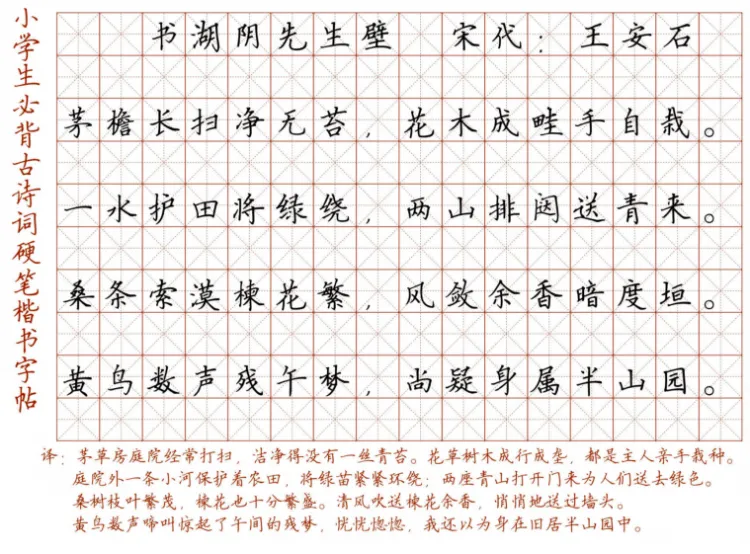 小学生必背古诗词硬笔楷书字帖
书湖阴先生壁 宋代：王安石
茅檐长扫净无苔，花木成畦手自栽。
一水护田将绿绕，两山排闼送青来。
桑条索漠楝花繁，风敛余香暗度垣。
黄鸟数声残午梦，尚疑身属半山园。
译：茅草房庭院经常打扫，洁净得没有一丝青苔。花草树木成行成垄，都是主人亲手栽种。
庭院外一条小河保护着农田，将绿苗紧紧环绕；两座青山打开门来为人们送去绿色。
桑树枝叶繁茂，楝花也十分繁盛。清风吹送楝花余香，悄悄地送过墙头。
黄鸟数声啼叫惊起了午间的残梦，恍恍惚惚，我还以为身在旧居半山园中。